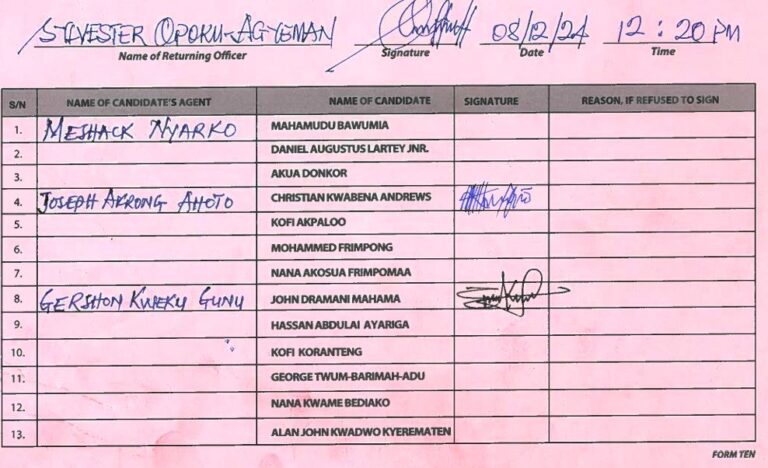 SILVESTER OPOKU-AGYEMAN 08/12/24 12:20 PM
Name of Returning Officer Signature Date Time
S/N NAME OF CANDIDATE'S AGENT NAME OF CANDIDATE SIGNATURE REASON, IF REFUSED TO SIGN
1. MESHACK NYARKO MAHAMUDU BAWUMIA
2. DANIEL AUGUSTUS LARTEY JNR.
3. AKUA DONKOR
4. JOSEPH AKRONG AHOTO CHRISTIAN KWABENA ANDREWS
5. KOFI AKPALOO
6. MOHAMMED FRIMPONG
7. NANA AKOSUA FRIMPOMAA
8. GERSHON KWEKU GUNU JOHN DRAMANI MAHAMA
9. HASSAN ABDULAI AYARIGA
10. KOFI KORANTENG
11. GEORGE TWUM-BARIMAH-ADU
12. NANA KWAME BEDIAKO
13. ALAN JOHN KWADWO KYEREMATEN
FORM TEN